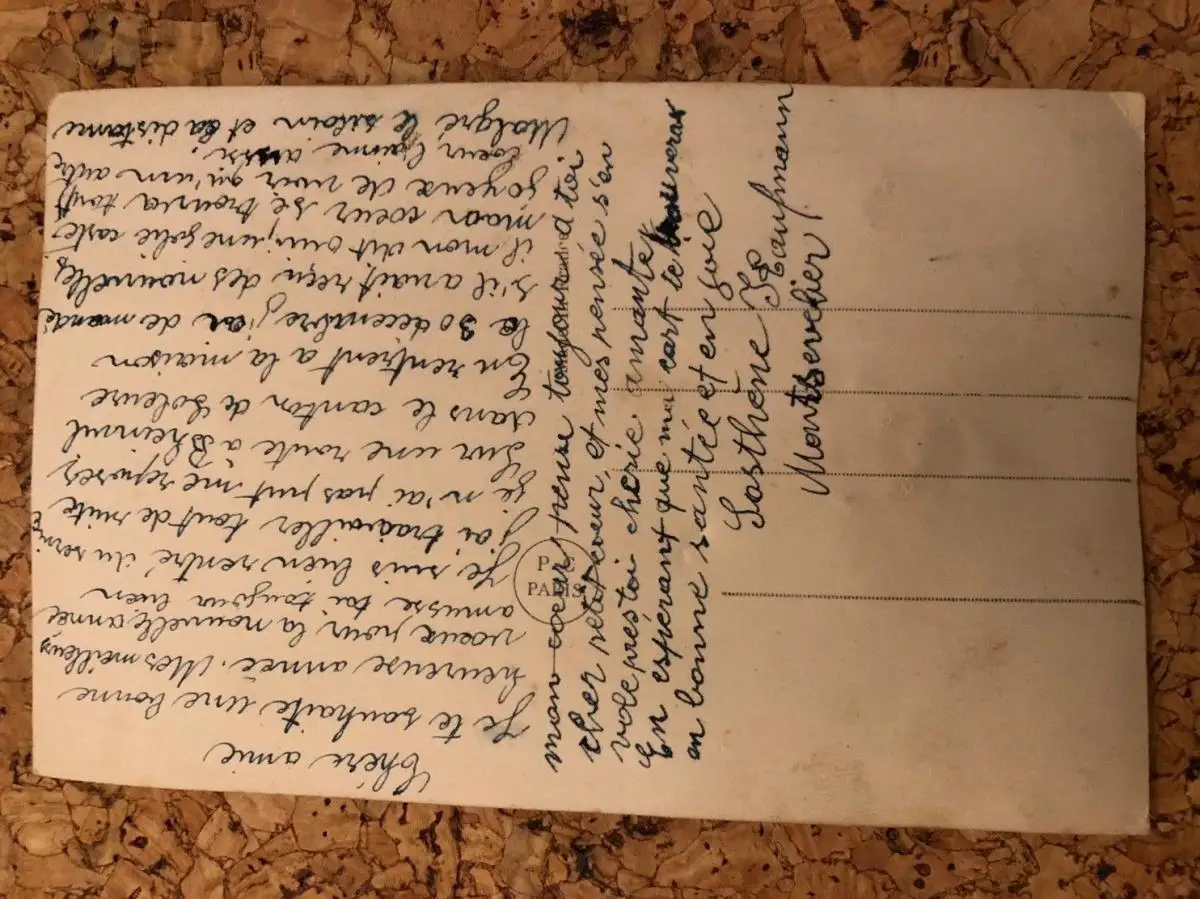 Chére amie
Je te souhaite une bonne
heureuse année. Mes meilleurs
voeux pour la nouvelle année
amusse toi toujour bien
Je suis bien rentré du service
j'ai travailler tout de suite
je n'ai pas put me reposez
sur une route à
dans le canton de Soleure
En rentrent a la maison
le 30 decembre j'ai demandé
s'il avait reçu des nouvelles,
il mon dit oui, une golie carte
mon coeur se trouva tout
joyeux de voir qu'un autre
coeur l'aime aussi.
Malgré le et la distance
mon coeur pense toujours a toi
cher petit coeur, et mes pensée s'en
vole pres toi cherie amante
En espérant que ma cart te trouveras
en bonne santée et en joie
Sosthène Kaufmann
Montsevelier
P.C
PARIS